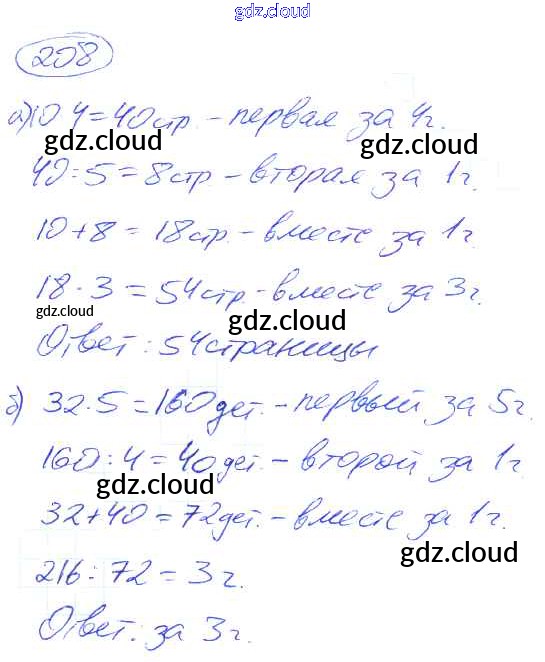 gdz.cloud
208
а) 10·4=40стр. - первая за 4ч.
gdz.cloud gdz.cloud
40:5=8стр - вторая за 1ч.
10+8=18стр. - вместе за 1ч.
18·3=54стр. - вместе за 3ч.
gdz.cloud gdz.cloud
Ответ: 54страницы
б) 32·5=160дет. - первый за 5ч.
160:4=40дет. - второй за 1ч.
gdz.cloud
32+40=72дет. - вместе за 1ч.
gdz.cloud
216:72=3ч.
Ответ: за 3ч.